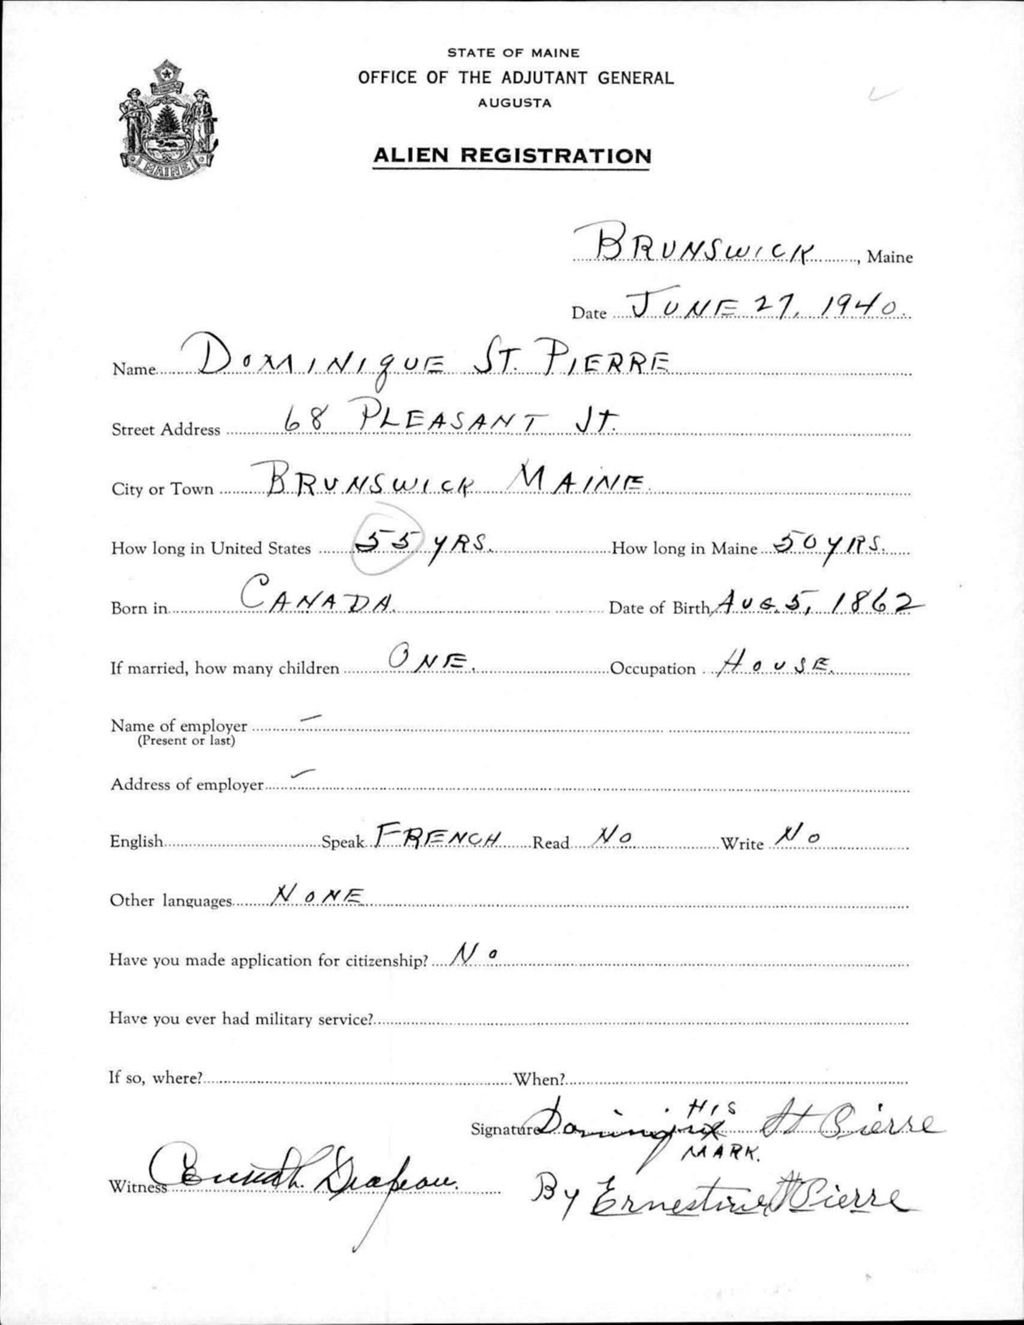 STATE OF MAINE
OFFICE OF THE ADJUTANT GENERAL
AUGUSTA
ALIEN REGISTRATION
MAINE
BRUNSWICK, Maine
Date JUNE 27, 1940.
Name DOMINIQUE ST. PIERRE
Street Address 68 PLEASANT ST.
City or Town BRUNSWICK MAINE.
How long in United States 55 YRS. How long in Maine 50 YRS.
Born in CANADA. Date of Birth AUG. 5, 1862
If married, how many children ONE. Occupation HOUSE.
Name of employer —
(Present or last)
Address of employer —
English Speak FRENCH Read NO Write NO
Other languages NONE
Have you made application for citizenship? NO
Have you ever had military service?
If so, where? When?
HIS
Signature Dominique X St Pierre
MARK.
Witness Drapeau.
By Ernestine St Pierre